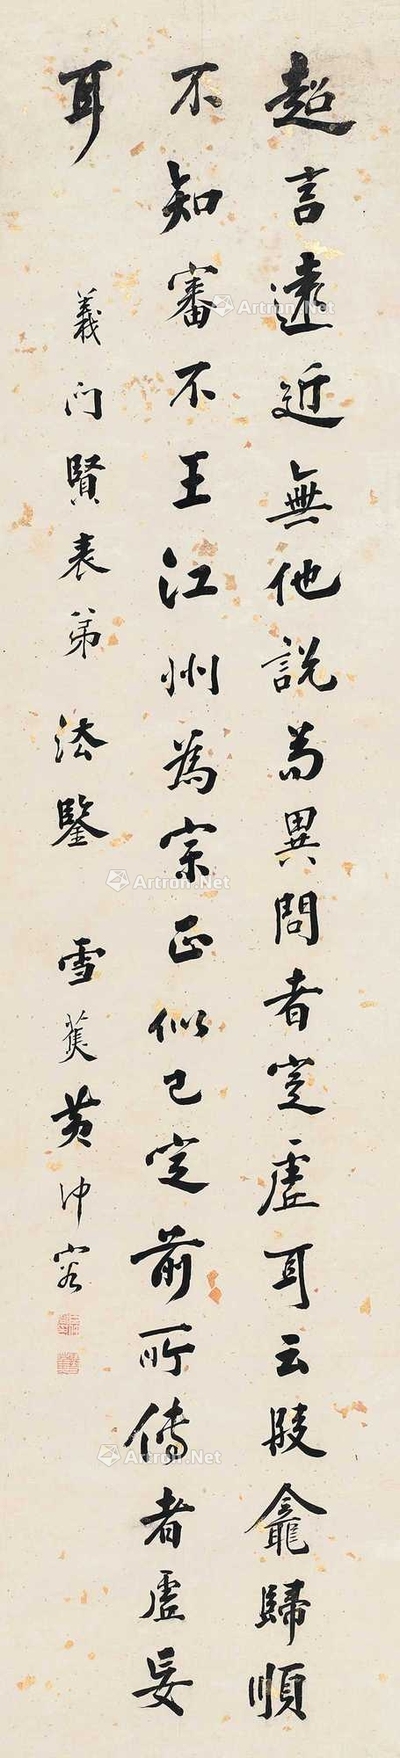 超言遠近無他說前異問者定虛耳云段龕歸順
不知審不王江州為宗正似已定前所傳者虛妄
耳
義門賢表弟 法鑒 雪蕉黃仲容
Artron.Net
Artron.Net
Artron.Net